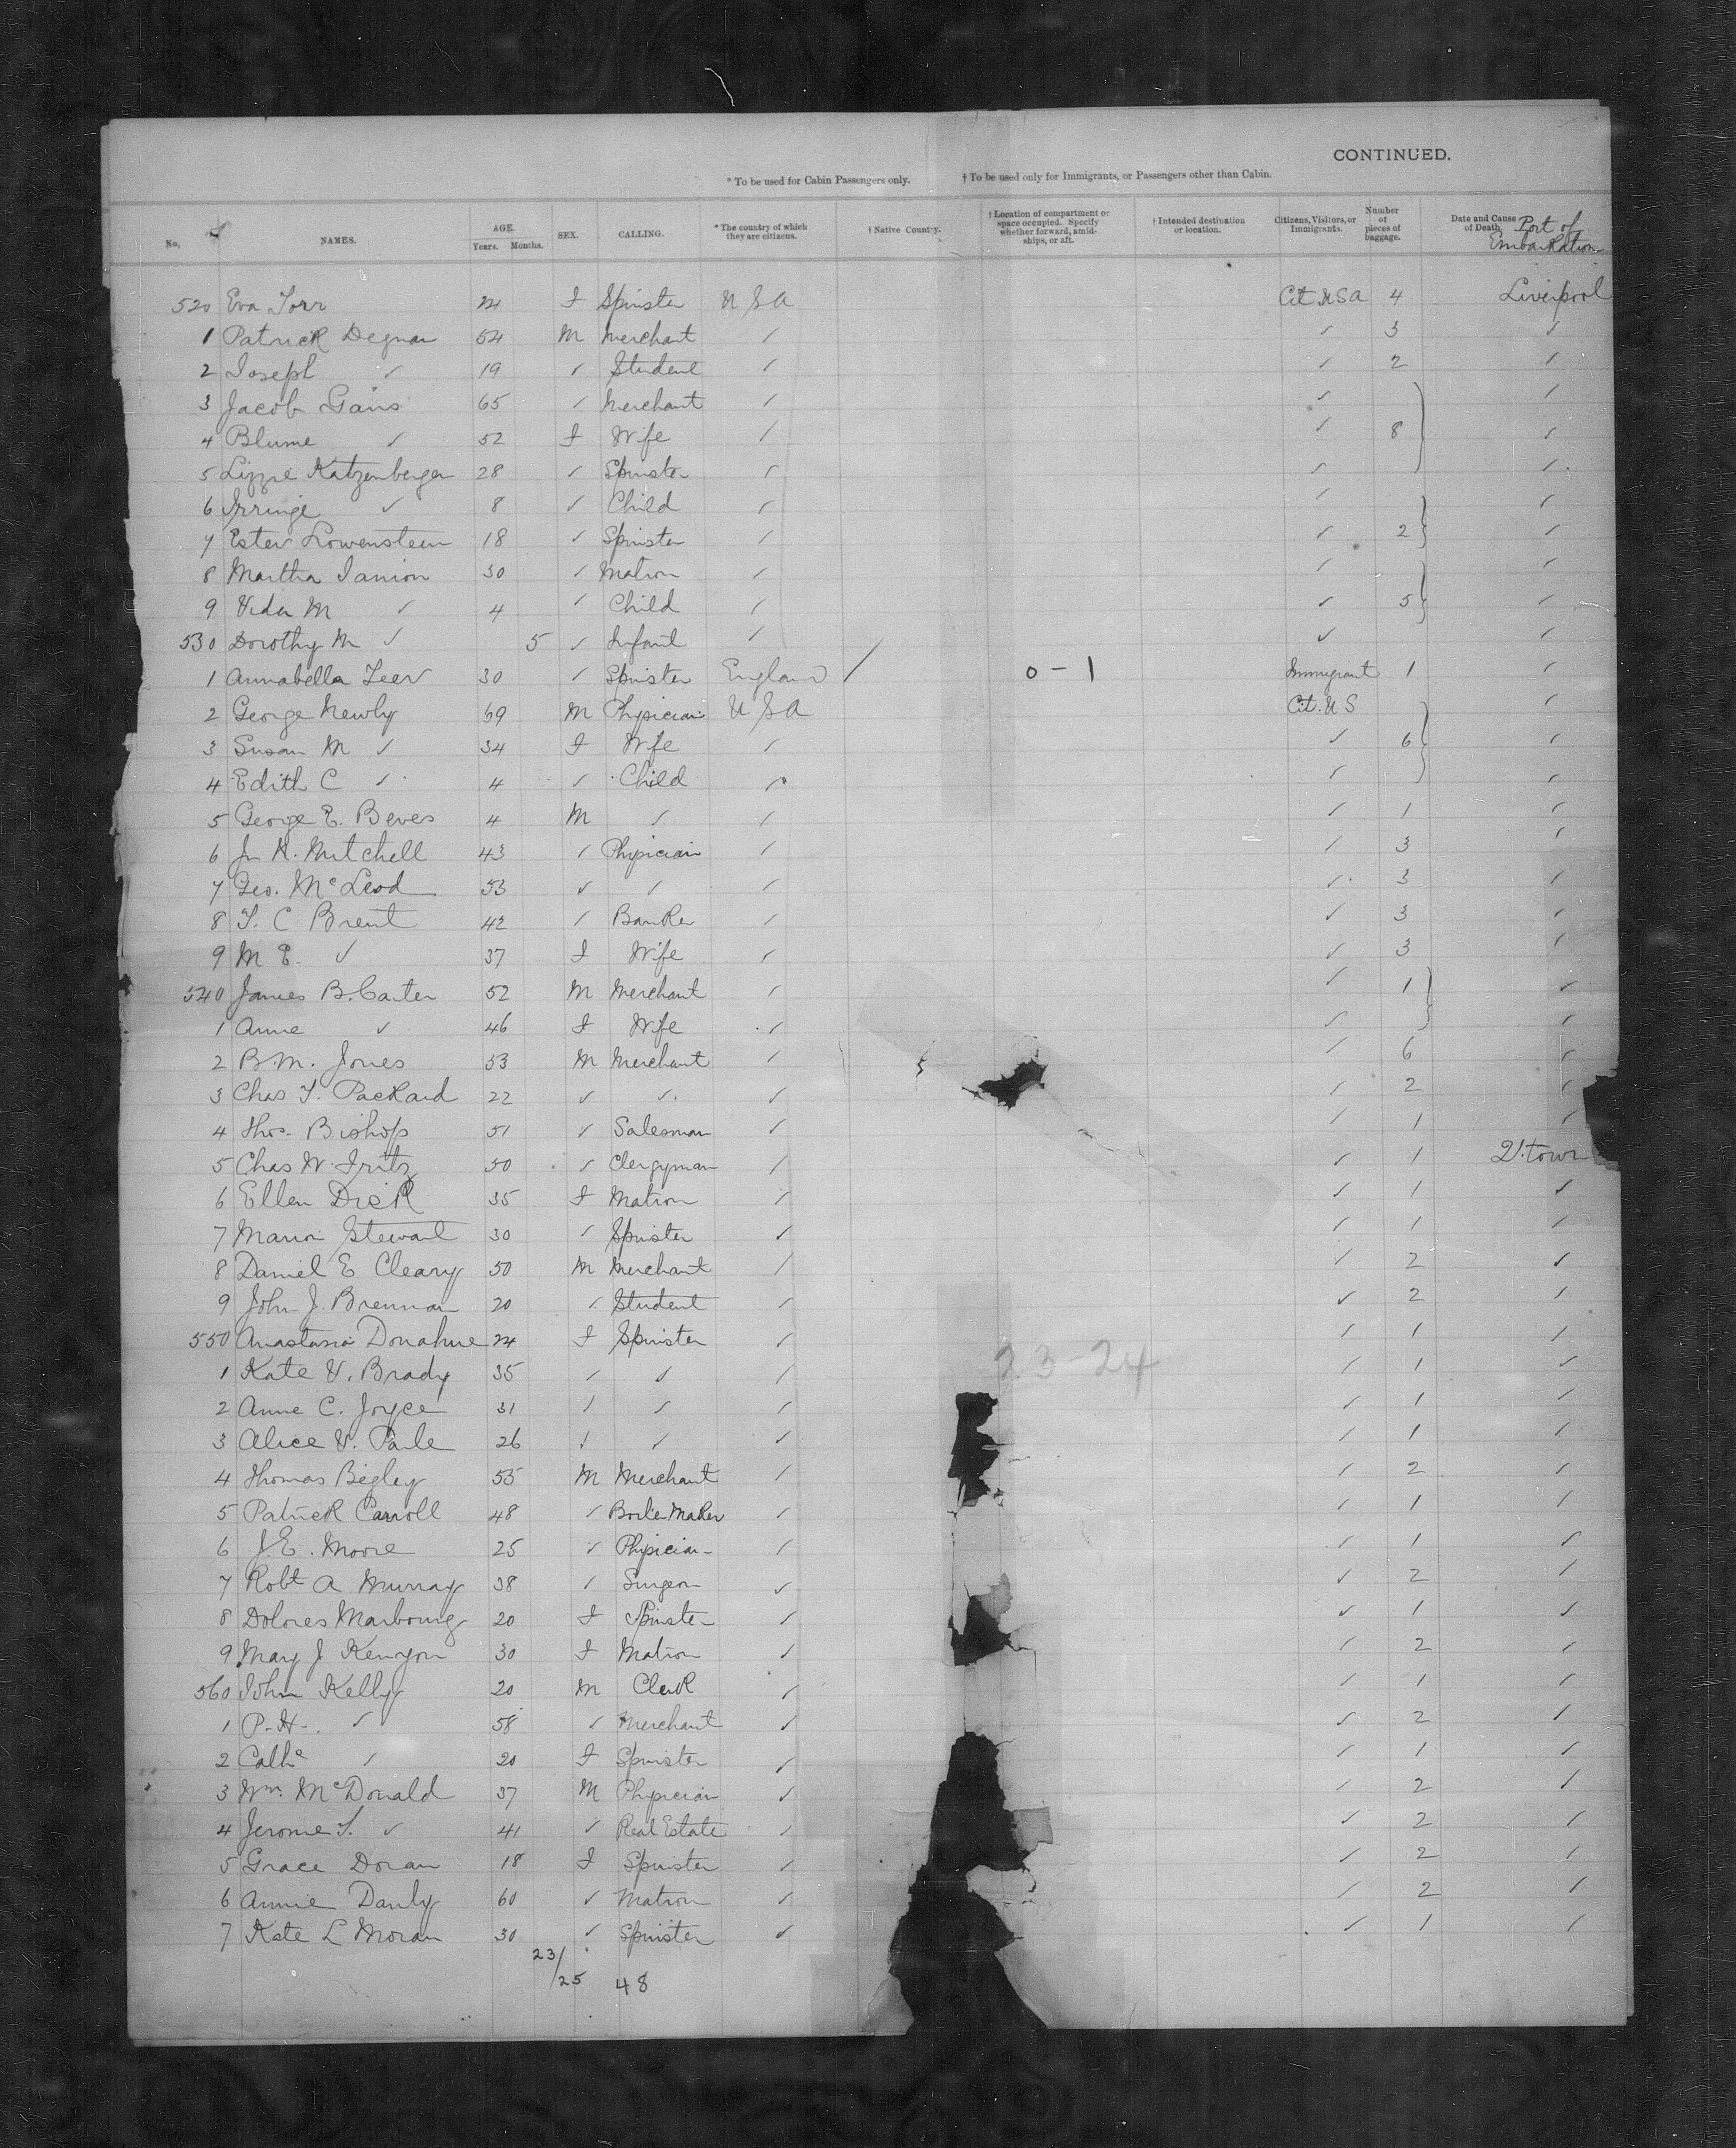 CONTINUED.
* To be used for Cabin Passengers only. † To be used only for Immigrants, or Passengers other than Cabin.
No. NAMES. AGE. Years. Months. SEX. CALLING. * The country of which they are citizens. † Native Country. † Location of compartment or space occupied. Specify whether forward, amidships, or aft. † Intended destination or location. Citizens, Visitors, or Immigrants. Number of pieces of baggage. Date and Cause of Death. Port of Embarkation
520 Eva Torr 24 F Spinster U S A Cit USA 4 Liverpool
1 Patrick Degnan 54 M Merchant ✓ ✓ 3 ✓
2 Joseph ✓ 19 ✓ Student ✓ ✓ 2 ✓
3 Jacob Gans 65 ✓ Merchant ✓ ✓ ✓
4 Blume ✓ 52 F Wife ✓ ✓ 8 ✓
5 Lizzie Katzenberger 28 ✓ Spinster ✓ ✓ ✓
6 ✓ 8 ✓ Child ✓ ✓ ✓
7 Ester Lowenstein 18 ✓ Spinster ✓ ✓ 2 ✓
8 Martha Janion 30 ✓ Matron ✓ ✓ ✓
9 Vida M ✓ 4 ✓ Child ✓ ✓ 5 ✓
530 Dorothy M ✓ 5 ✓ Infant ✓ ✓ ✓
1 Annabella Teer 30 ✓ Spinster England / 0 - 1 Immigrant 1 ✓
2 George Newby 69 M Physician U S A Cit. U S ✓
3 Susan M ✓ 34 F Wife ✓ ✓ 6 ✓
4 Edith C ✓ 4 ✓ Child ✓ ✓ ✓
5 George E. Beves 4 M ✓ ✓ ✓ 1 ✓
6 Jn K. Mitchell 43 ✓ Physician ✓ ✓ 3 ✓
7 Geo. McLeod 53 ✓ ✓ ✓ ✓ 3 ✓
8 T. C Brent 42 ✓ Banker ✓ ✓ 3 ✓
9 M E. ✓ 37 F Wife ✓ ✓ 3 ✓
540 James B. Carter 52 M Merchant ✓ ✓ 1 ✓
1 Anne ✓ 46 F Wife ✓ ✓ ✓
2 B. M. Jones 53 M Merchant ✓ ✓ 6 ✓
3 Chas T. Packard 22 ✓ ✓ ✓ ✓ 2 ✓
4 Thos. Bishop 51 ✓ Salesman ✓ ✓ 1 ✓
5 Chas W. Fritz 50 ✓ Clergyman ✓ ✓ 1 Q'town
6 Ellen Dick 35 F Matron ✓ ✓ 1 ✓
7 Marion Stewart 30 ✓ Spinster ✓ ✓ 1 ✓
8 Daniel E Cleary 50 M Merchant ✓ ✓ 2 ✓
9 John J. Brennan 20 ✓ Student ✓ ✓ 2 ✓
550 Anastasia Donahue 24 F Spinster ✓ ✓ 1 ✓
1 Kate V. Brady 35 ✓ ✓ ✓ 23-24 ✓ 1 ✓
2 Anne C. Joyce 31 ✓ ✓ ✓ ✓ 1 ✓
3 Alice V. Parle 26 ✓ ✓ ✓ ✓ 1 ✓
4 Thomas Begley 55 M Merchant ✓ ✓ 2 ✓
5 Patrick Carroll 48 ✓ Boiler Maker ✓ ✓ 1 ✓
6 J. E. Moore 25 ✓ Physician ✓ ✓ 1 ✓
7 Robt A Murray 38 ✓ Surgeon ✓ ✓ 2 ✓
8 Dolores Marbourg 20 F Spinster ✓ ✓ 1 ✓
9 Mary J Kenyon 30 F Matron ✓ ✓ 2 ✓
560 John Kelly 20 M Clerk ✓ ✓ 1 ✓
1 P. H. ✓ 58 ✓ Merchant ✓ ✓ 2 ✓
2 Cathe ✓ 20 F Spinster ✓ ✓ 1 ✓
3 Wm. McDonald 37 M Physician ✓ ✓ 2 ✓
4 Jerome T. ✓ 41 ✓ Real Estate ✓ ✓ 2 ✓
5 Grace Doran 18 F Spinster ✓ ✓ 2 ✓
6 Annie Danly 60 ✓ Matron ✓ ✓ 2 ✓
7 Kate L Moran 30 ✓ Spinster ✓ ✓ 1 ✓
23/25 48